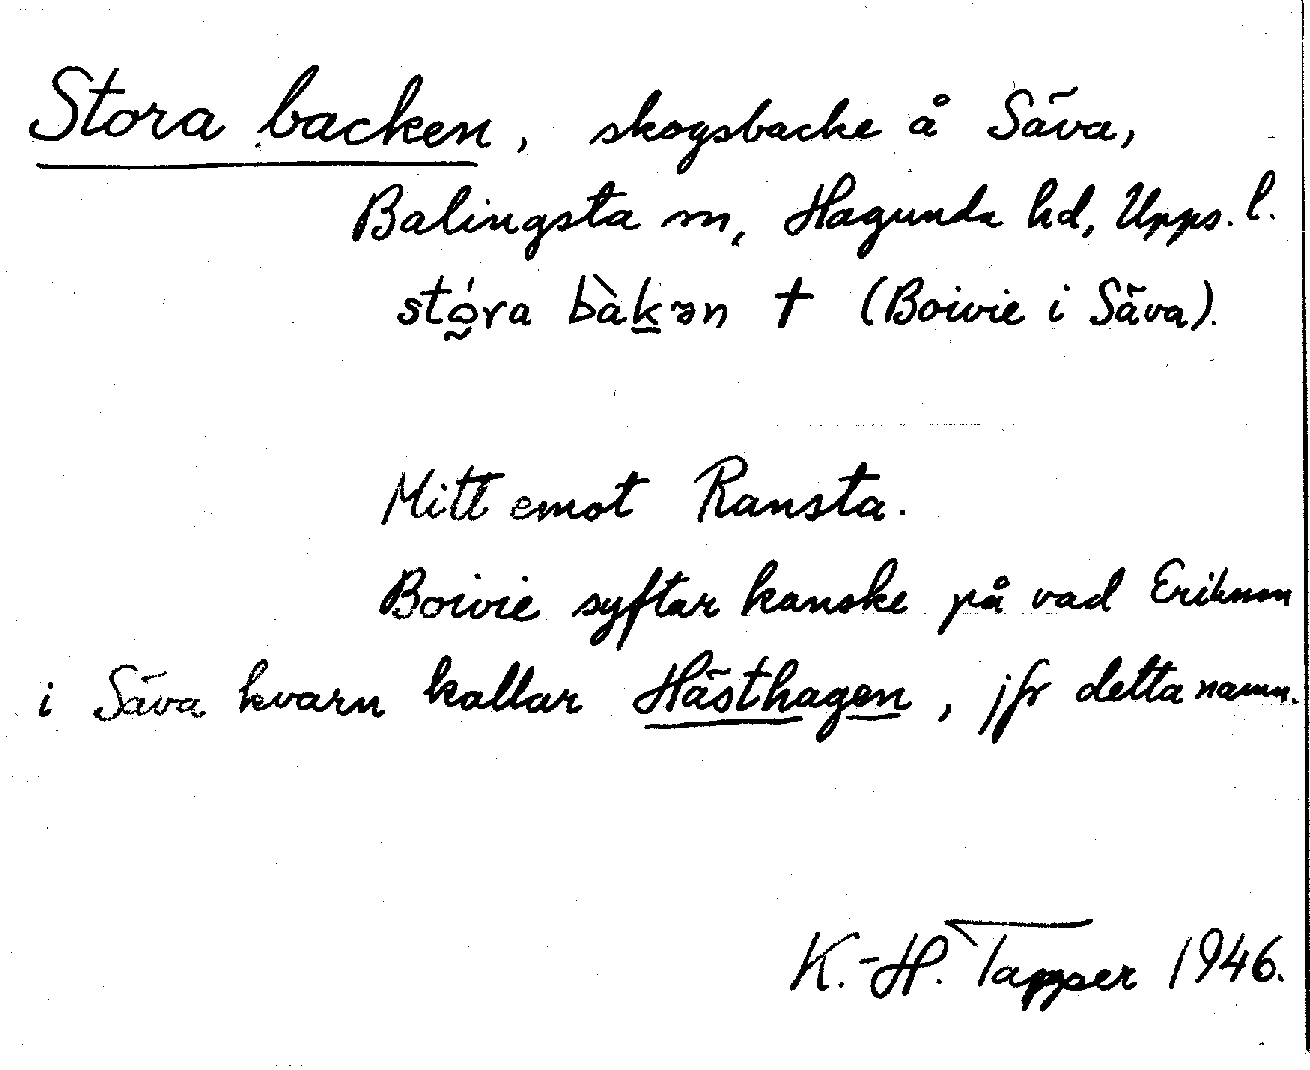 Stora backen, skogsbacke å Säva,
Balingsta sn, Hagunda hd, Upps. l.
stó̰ra bàḵən † (Boivie i Säva).
Mitt emot Ransta.
Boivie syftar kanske på vad Eriksson
i Säva kvarn kallar Hästhagen, jfr detta namn.
K.-H. Tapper 1946.